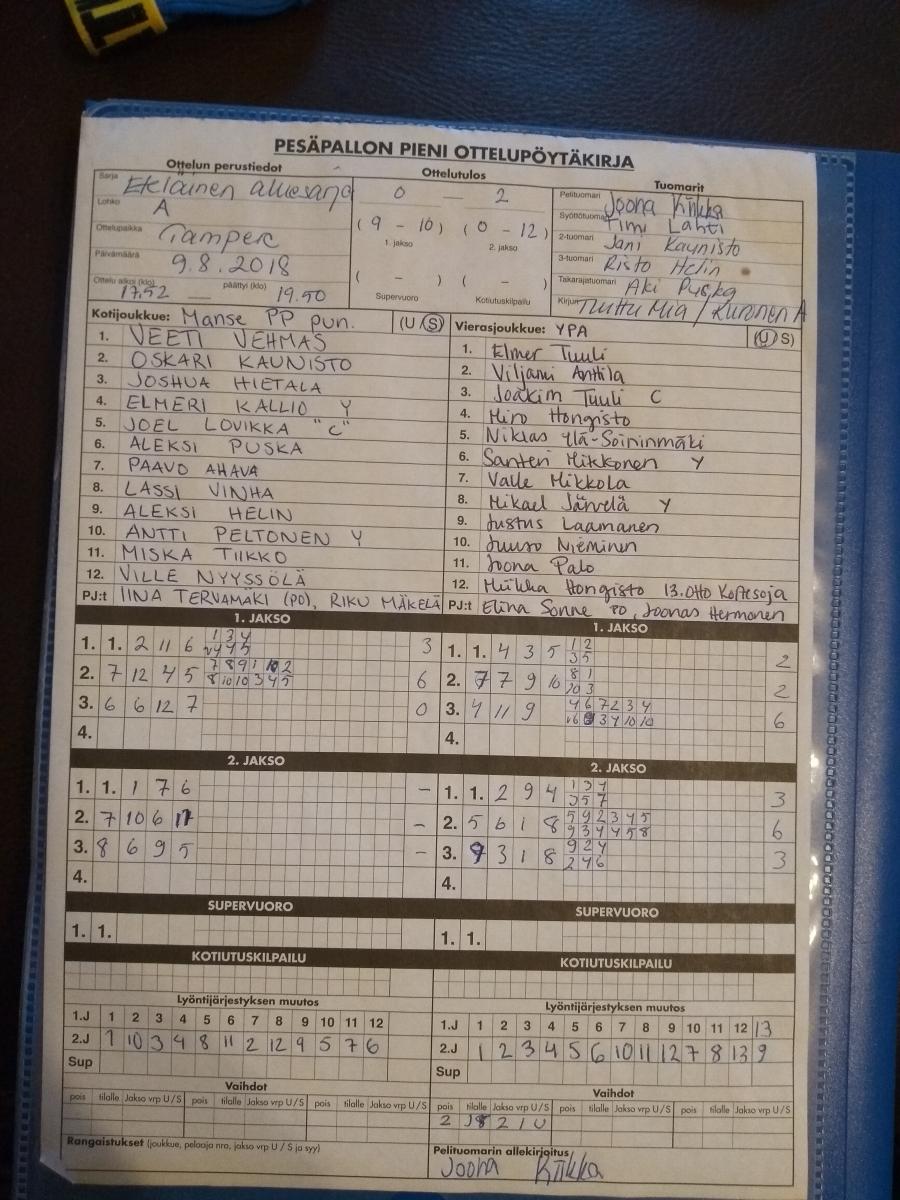 PESÄPALLON PIENI OTTELUPÖYTÄKIRJA
Ottelun perustiedot
Sarja Eteläinen aluesarja
Lohko A
Ottelupaikka Tampere
Päivämäärä 9.8.2018
Ottelu alkoi (klo) 17.52 — päättyi (klo) 19.50
Ottelutulos
0 — 2
(9 - 10) (0 - 12)
1. jakso 2. jakso
( - ) ( - )
Supervuoro Kotiutuskilpailu
Tuomarit
Pelituomari Joona Kiikka
Syöttötuomari Timi Lahti
2-tuomari Jani Kaunisto
3-tuomari Risto Helin
Takarajatuomari Aki Puska
Kirjuri Miia / Kuronen A
Kotijoukkue: Manse PP pun. (U/S)
1. VEETI VEHMAS
2. OSKARI KAUNISTO
3. JOSHUA HIETALA
4. ELMERI KALLIO Y
5. JOEL LOVIKKA "C"
6. ALEKSI PUSKA
7. PAAVO AHAVA
8. LASSI VINHA
9. ALEKSI HELIN
10. ANTTI PELTONEN Y
11. MISKA TIIKKO
12. VILLE NYYSSÖLÄ
PJ:t IINA TERVAMÄKI (PO), RIKU MÄKELÄ
Vierasjoukkue: YPA (U/S)
1. Elmer Tuuli
2. Viljami Anttila
3. Joakim Tuuli C
4. Miro Hongisto
5. Niklas Ylä-Soininmäki
6. Santeri Mikkonen Y
7. Valle Mikkola
8. Mikael Järvelä Y
9. Justus Laamanen
10. Juuso Nieminen
11. Joona Palo
12. Miikka Hongisto 13. Otto Koitesoja
PJ:t Elina Sonne PO, Joonas Hermonen
1. JAKSO
1. 1. 2 11 6 1 3 4 3
4 5
2. 7 12 4 5 7 8 9 1 10 2 6
8 10 10 3 4 5
3. 6 6 12 7 0
4.
2. JAKSO
1. 1. 1 7 6 –
2. 7 10 6 11 –
3. 8 6 9 5 –
4.
SUPERVUORO
1. 1.
KOTIUTUSKILPAILU
Lyöntijärjestyksen muutos
1.J 1 2 3 4 5 6 7 8 9 10 11 12
2.J 1 10 3 4 8 11 2 12 9 5 7 6
Sup
Vaihdot
pois tilalle Jakso vrp U/S pois tilalle Jakso vrp U/S pois tilalle Jakso vrp U/S
Rangaistukset (joukkue, pelaaja nro, jakso vrp U / S ja syy)
1. JAKSO
1. 1. 4 3 5 1 2 2
3 5
2. 7 7 9 10 8 1 2
10 3
3. 4 11 9 4 6 7 2 3 4 6
3 4 10 10
4.
2. JAKSO
1. 1. 2 9 4 1 3 4 3
3 5 7
2. 5 6 1 8 5 9 2 3 4 5 6
9 3 4 4 5 8
3. 9 3 1 8 9 2 4 3
2 4 6
4.
SUPERVUORO
1. 1.
KOTIUTUSKILPAILU
Lyöntijärjestyksen muutos
1.J 1 2 3 4 5 6 7 8 9 10 11 12 13
2.J 1 2 3 4 5 6 10 11 12 7 8 13 9
Sup
Vaihdot
pois tilalle Jakso vrp U/S pois tilalle Jakso vrp U/S pois tilalle Jakso vrp U/S
2 2 1 U
Pelituomarin allekirjoitus
Joona Kiikka